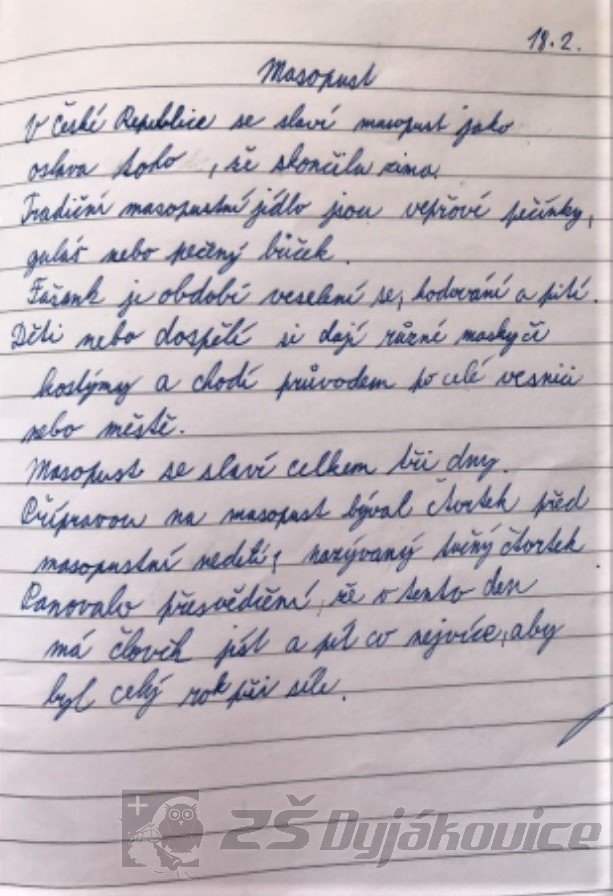 18.2.
Masopust
V České Republice se slaví masopust jako
oslava toho, že skončila zima.
Tradiční masopustní jídlo jsou vepřové pečínky,
guláš nebo pečený bůček.
Fašank je období veselení se, hodování a pití.
Děti nebo dospělí si dají různé masky či
kostýmy a chodí průvodem po celé vesnici
nebo městě.
Masopust se slaví celkem tři dny.
Přípravou na masopust býval čtvrtek před
masopustní nedělí, nazývaný tučný čtvrtek
Panovalo přesvědční, že v tento den
má člověk jíst a pít co nejvíce, aby
byl celý rok při síle.
ZŠ Dyjákovice